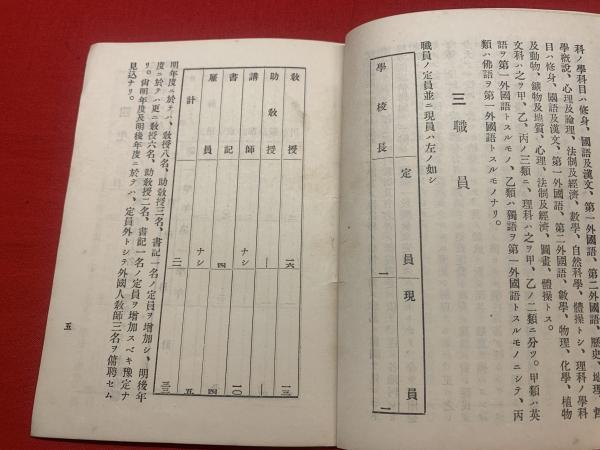 科ノ學科目ハ修身、國語及漢文、第一外國語、第二外國語、歷史、地理、哲
學槪說、心理及論理、法制及經濟、數學、自然科學、體操トシ、理科ノ學科
目ハ修身、國語及漢文、第一外國語、第二外國語、數學、物理、化學、植物
及動物、鑛物及地質、心理、法制及經濟、圖畫、體操トス。
文科ハ之ヲ甲、乙、丙ノ三類ニ、理科ハ之ヲ甲、乙ノ二類ニ分ツ。甲類ハ英
語ヲ第一外國語トスルモノ、乙類ハ獨語ヲ第一外國語トスルモノニシテ、丙
類ハ佛語ヲ第一外國語トスルモノナリ。
三 職員
職員ノ定員並ニ現員ハ左ノ如シ
定員 現員
學校長 一 一
敎授 一六 一三
助敎授 一 一
講師 ナシ 一〇
書記 四 四
雇員 ナシ 五
計 二一 三三
明年度ニ於テハ、敎授八名、助敎授三名、書記一名ノ定員ヲ增加シ、明後年
度ニ於テハ更ニ敎授六名、助敎授二名、書記一名ノ定員ヲ增加スベキ豫定ナ
リ。尙明年度及明後年度ニ於テハ、定員外トシテ外國人敎師三名ヲ傭聘セム
見込ナリ。
五